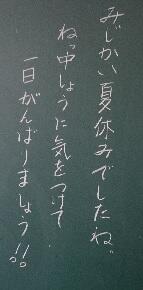 みじかい夏休みでしたね。
ねっ中しょうに気をつけて
一日がんばりましょう!!